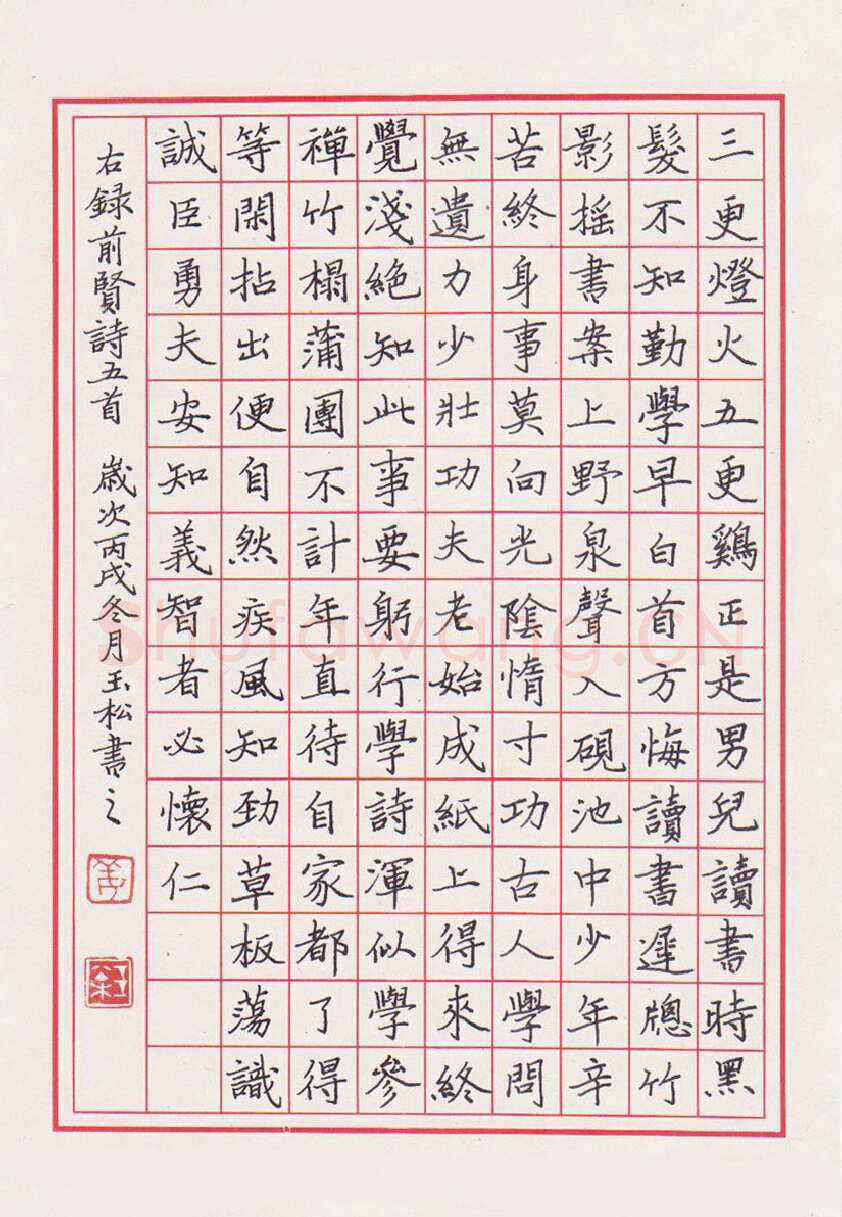 三更燈火五更鷄正是男兒讀書時黑
髮不知勤學早白首方悔讀書遲牕竹
影摇書案上野泉聲入硯池中少年辛
苦終身事莫向光陰惰寸功古人學問
無遺力少壯功夫老始成紙上得來終
覺淺絕知此事要躬行學詩渾似學參
禪竹榻蒲團不計年直待自家都了得
等閑拈出便自然疾風知勁草板蕩識
誠臣勇夫安知義智者必懷仁
右録前賢詩五首 歲次丙戌冬月玉松書之
Shufawang.CN